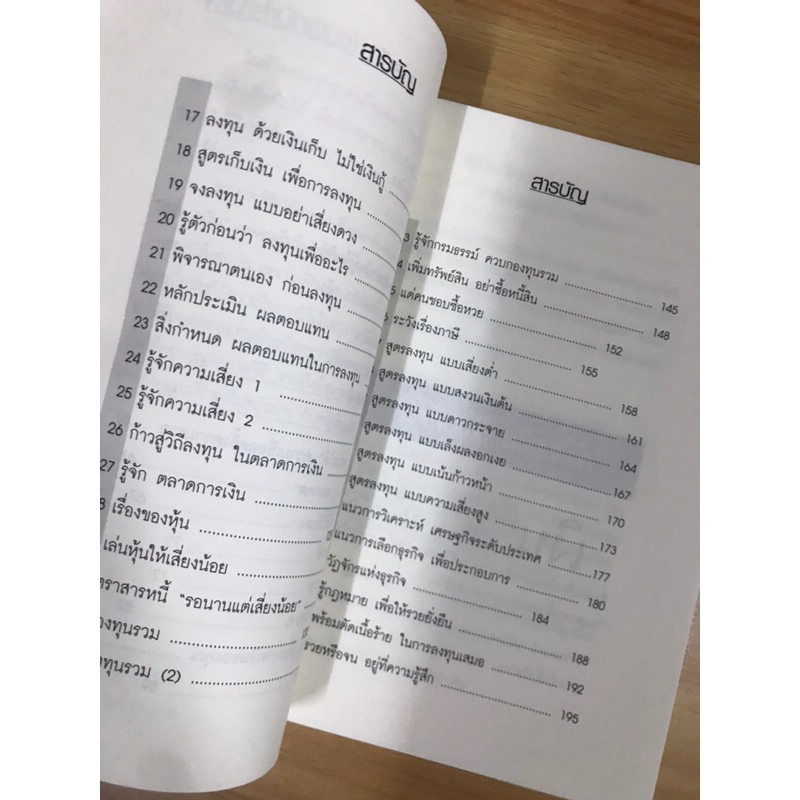 สารบัญ
17 ลงทุน ด้วยเงินเก็บ ไม่ใช่เงินกู้
18 สูตรเก็บเงิน เพื่อการลงทุน
19 จงลงทุน แบบอย่าเสี่ยงดวง
20 รู้ตัวก่อนว่า ลงทุนเพื่ออะไร
21 พิจารณาตนเอง ก่อนลงทุน
22 หลักประเมิน ผลตอบแทน
23 สิ่งกำหนด ผลตอบแทนในการลงทุน
24 รู้จักความเสี่ยง 1
25 รู้จักความเสี่ยง 2
26 ก้าวสู่วิถีลงทุน ในตลาดการเงิน
27 รู้จัก ตลาดการเงิน
8 เรื่องของหุ้น
เล่นหุ้นให้เสี่ยงน้อย
ตราสารหนี้ "รอนานแต่เสี่ยงน้อย"
องทุนรวม
งทุนรวม (2)
สารบัญ
3 รู้จักกรมธรรม์ ควบกองทุนรวม 145
4 เพิ่มทรัพย์สิน อย่าซื้อหนี้สิน 148
5 แด่คนชอบซื้อหวย 152
6 ระวังเรื่องภาษี 155
สูตรลงทุน แบบเสี่ยงต่ำ 158
สูตรลงทุน แบบสงวนเงินต้น 161
สูตรลงทุน แบบดาวกระจาย 164
สูตรลงทุน แบบเล็งผลงอกเงย 167
สูตรลงทุน แบบเน้นก้าวหน้า 170
สูตรลงทุน แบบความเสี่ยงสูง 173
แนวการวิเคราะห์ เศรษฐกิจระดับประเทศ 177
แนวการเลือกธุรกิจ เพื่อประกอบการ 180
วัฏจักรแห่งธุรกิจ 184
รู้กฎหมาย เพื่อให้รวยยั่งยืน 188
พร้อมตัดเนื้อร้าย ในการลงทุนเสมอ 192
รวยหรือจน อยู่ที่ความรู้สึก 195